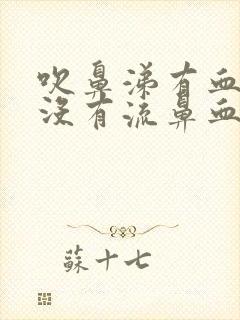 吹鼻涕有血
沒有流鼻血
蘇十七